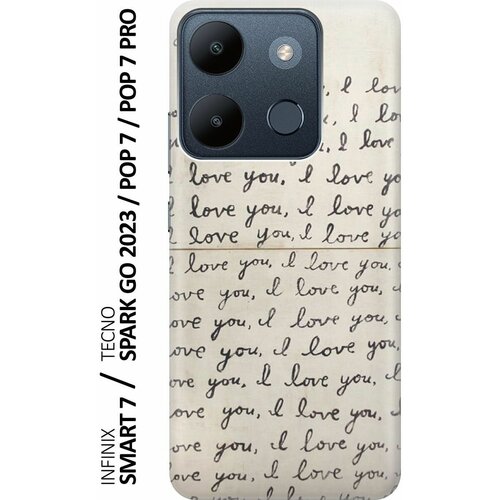 INFINIX
SMART 7 /
TECNO
SPARK GO 2023 / POP 7 / POP 7 PRO
, I lov
, I lo
I love
love you, I love yo
love you, I love yo
I love you, I love yo
I love you, I love you,
ove you, I love you,
love you, I love you,
ove you, I love you,
ove you, I love you, I
love you, I love you,
ove you, I love you,
love you, I love you,
ove you, I love you,